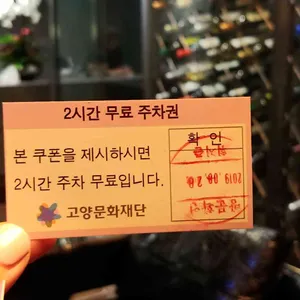 2시간 무료 주차권
본 쿠폰을 제시하시면
2시간 주차 무료입니다.
고양문화재단
확 인